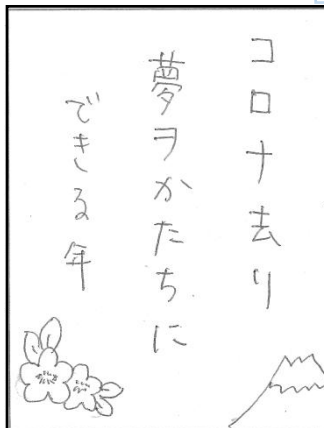 コロナ去り
夢ヲかたちに
できる年